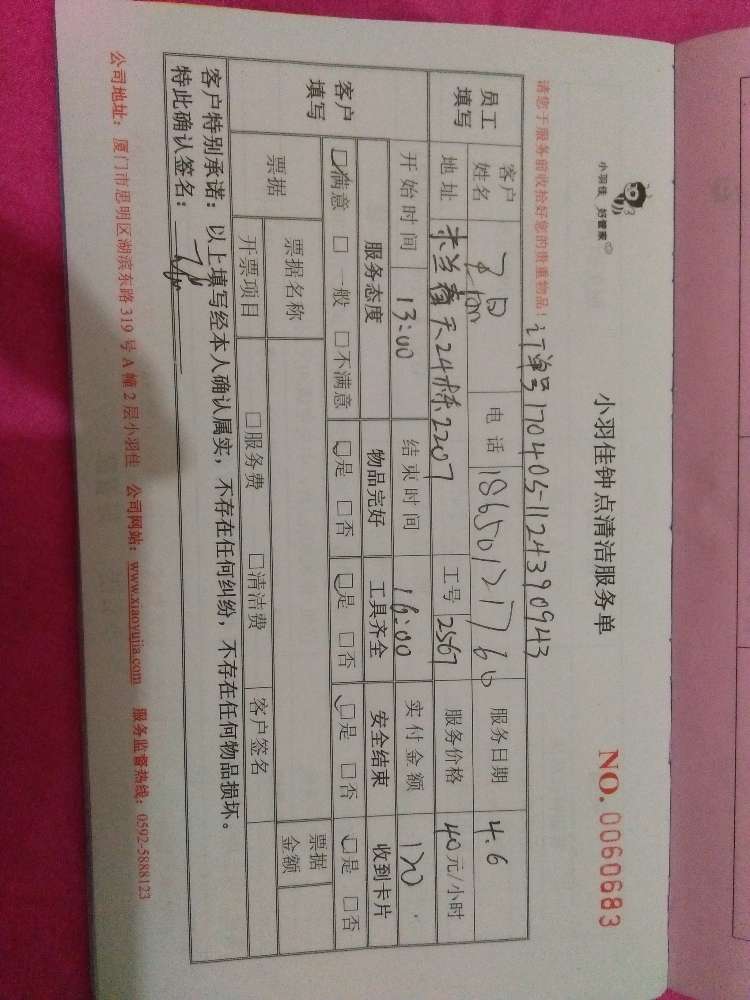 小羽佳 好管家
小羽佳钟点清洁服务单
NO. 0060683
请您于服务前收拾好您的贵重物品！ 订单号170405-1124390943
员工填写 客户姓名 电话 18650121760 服务日期 4.6
地址 木兰春天24栋2207 工号 2567 服务价格 40元/小时
客户填写 开始时间 13:00 结束时间 16:00 实付金额 120
服务态度 物品完好 工具齐全 安全结束 收到卡片
☑满意 □一般 □不满意 ☑是 □否 ☑是 □否 ☑是 □否 ☑是 □否
票据 票据名称 票据金额
开票项目 □服务费 □清洁费 客户签名
客户特别承诺：以上填写经本人确认属实，不存在任何纠纷，不存在任何物品损坏。
特此确认签名：
公司地址：厦门市思明区湖滨东路 319 号 A 幢 2 层小羽佳 公司网站：www.xiaoyujia.com 服务监督热线：0592-5888123